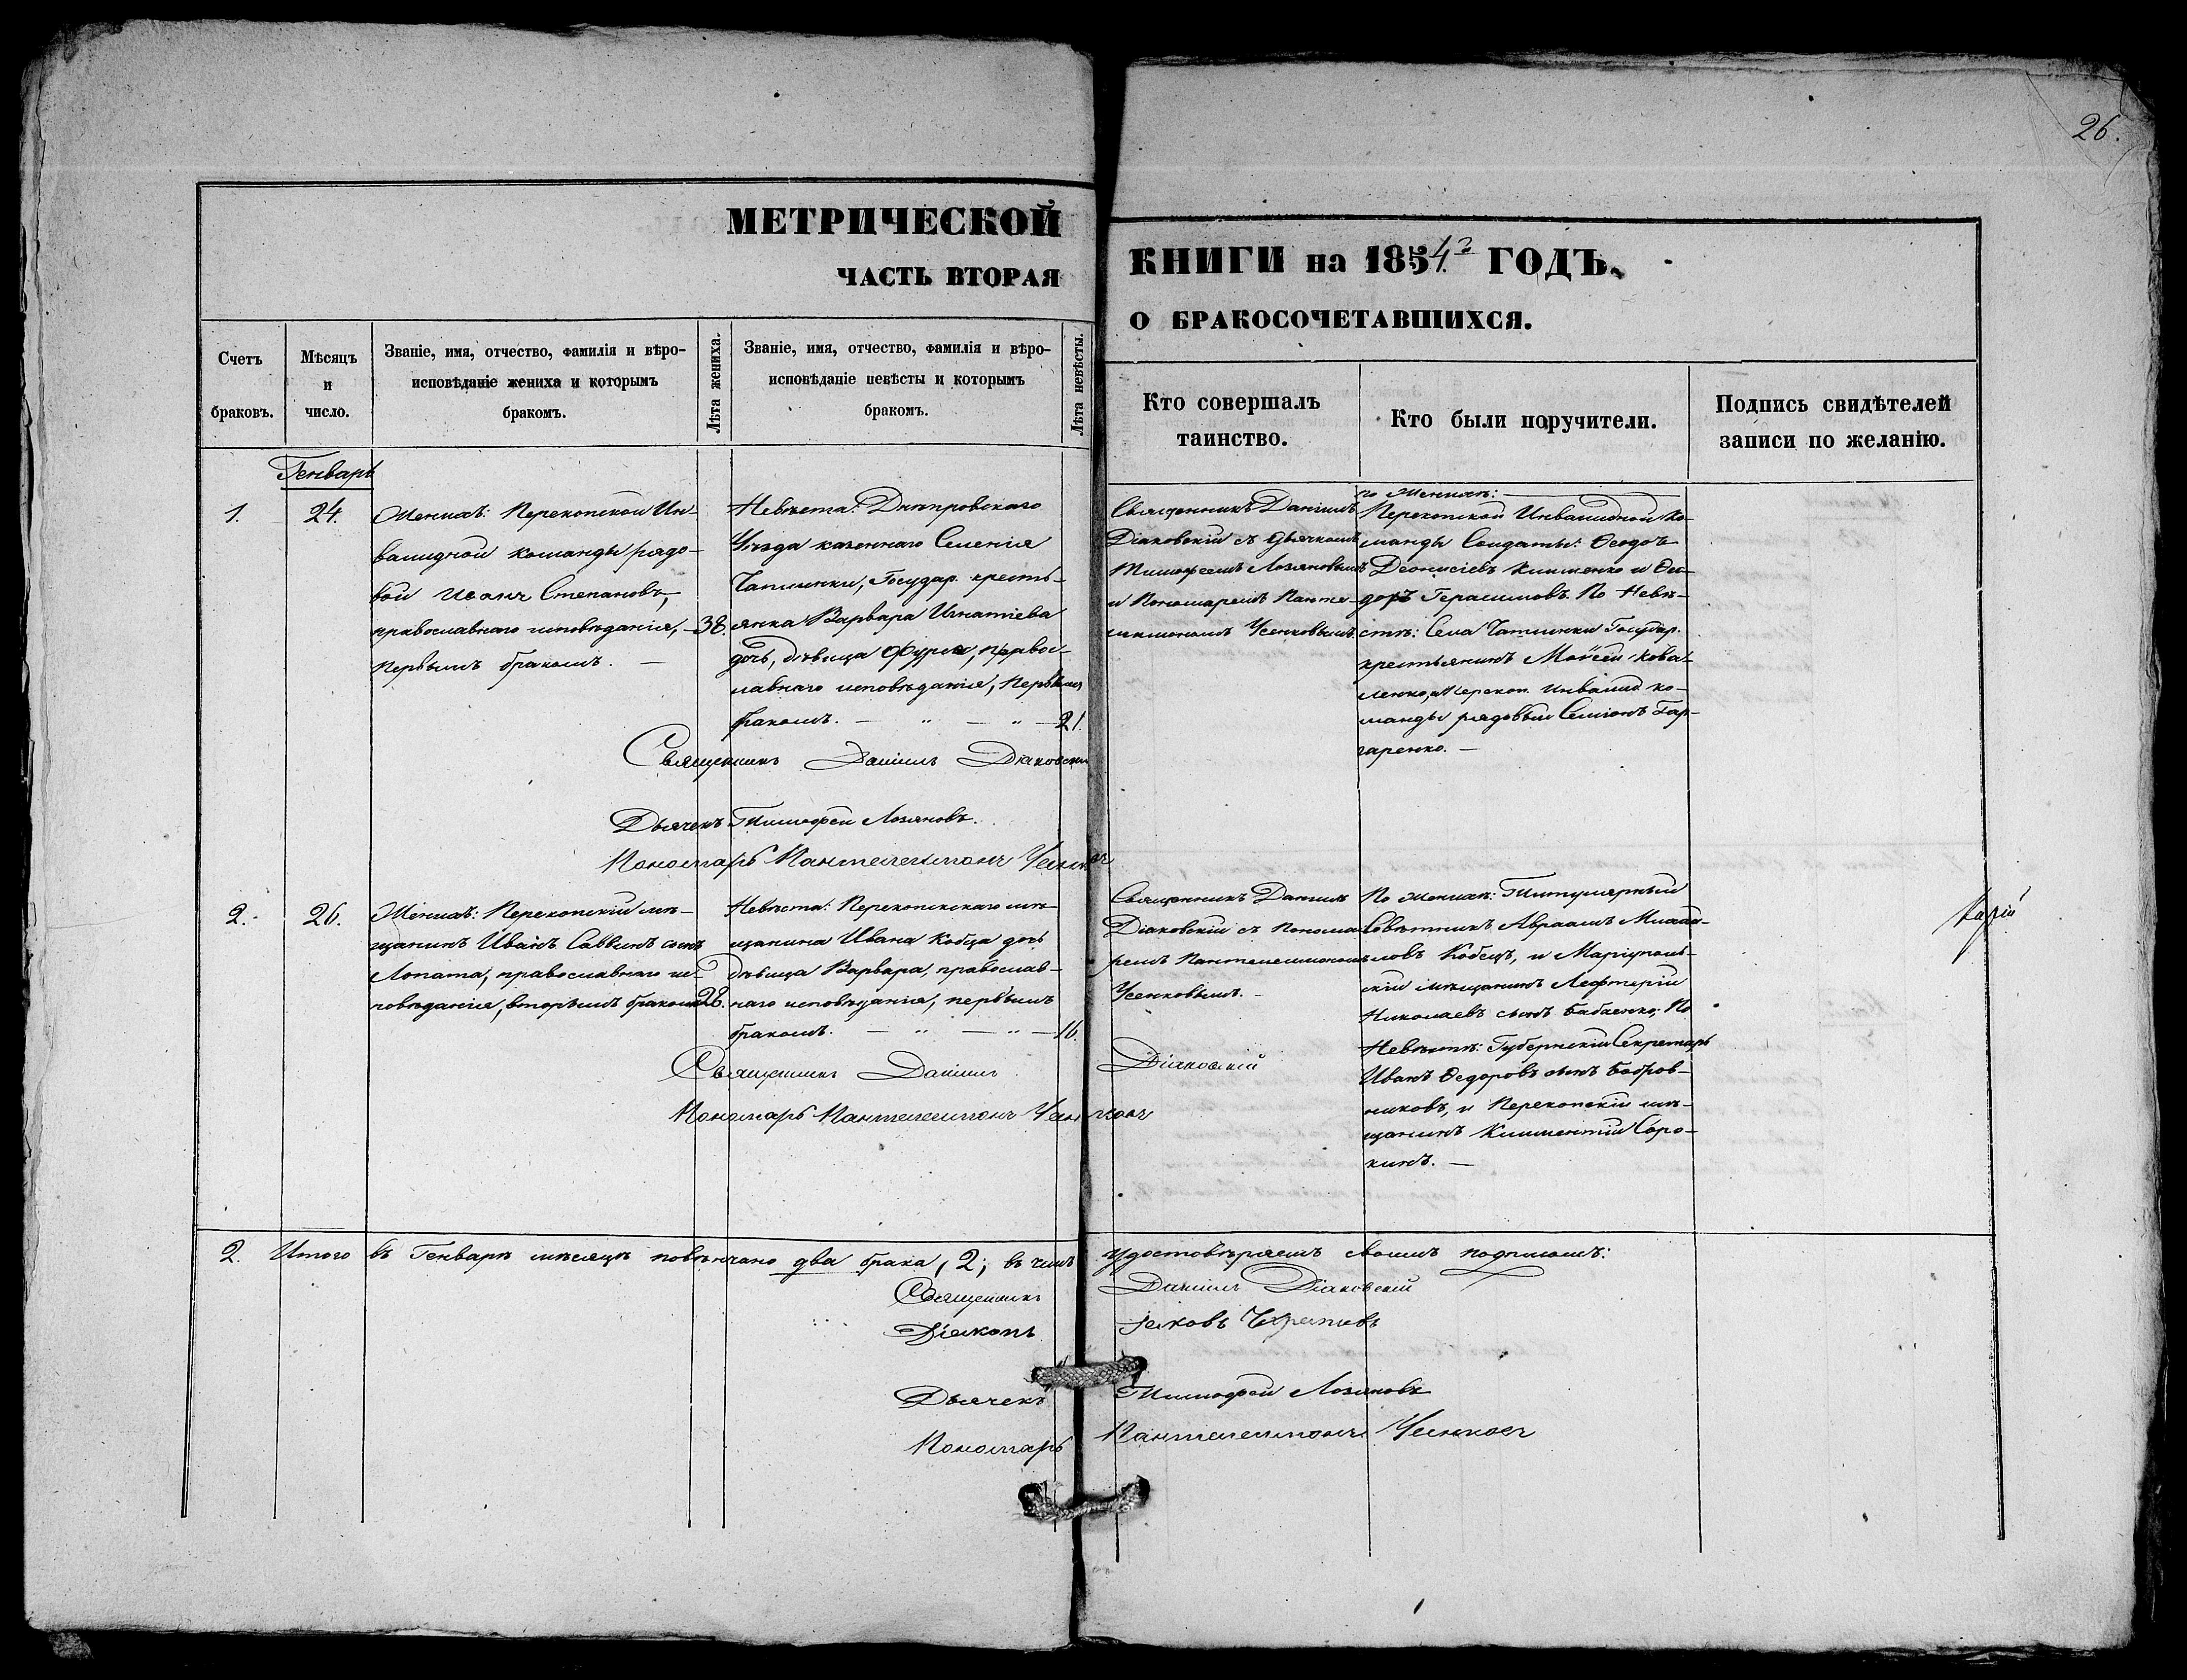 26.
МЕТРИЧЕСКОЙ
ЧАСТЬ ВТОРАЯ
КНИГИ на 1854 ГОДЪ.
О БРАКОСОЧЕТАВШИХСЯ.
Счетъ
браковъ.
Мѣсяцъ
и
число.
Званіе, имя, отчество, фамилія и вѣро-
исповѣданіе жениха и которымъ
бракомъ.
Лѣта жениха.
Званіе, имя, отчество, фамилія и вѣро-
исповѣданіе невѣсты и которымъ
бракомъ.
Лѣта невѣсты.
Кто совершалъ
таинство.
Кто были поручители.
Подпись свидѣтелей
записи по желанію.
Генварь
1.
24.
Женихъ: Перекопской Ин-
валидной команды рядо-
вой Иванъ Степановъ,
православнаго исповѣданія,
первымъ бракомъ. —
38.
Невѣста: Днѣпровскаго
Уѣзда казеннаго Селенія
Чаплинки, Государ. кресть-
янка Варвара Игнатіева
дочь, дѣвица Фурса, правос-
лавнаго исповѣданія, первымъ
бракомъ. — „ — „ —
21.
Священникъ Даніилъ
Діаковскій съ Дьячкомъ
Тимофеемъ Лозяновымъ
и Пономаремъ Панте-
леимономъ Усенковымъ.
по Женихѣ: —
Перекопской Инвалидной Ко-
манды Солдаты: Ѳеодоъ
Діонисіевъ Клименко и Ѳео-
доръ Герасимовъ. По Невѣ-
стѣ: Села Чаплинки Государ.
крестьянинъ Моисей Кова-
ленко, и Перекоп. Инвалид. ко-
манды рядовый Симіонъ Гар-
гаренко. —
Священникъ Даніилъ Діаковскій
Дьячекъ Тимофей Лозяновъ.
Пономарь Пантелеимонъ Усенковъ
2.
26.
Женихъ: Перекопскій мѣ-
щанинъ Иванъ Саввинъ сынъ
Лопата, православнаго ис-
повѣданія, вторымъ бракомъ
28.
Невѣста: Перекопскаго мѣ-
щанина Ивана Кобца дочь
дѣвица Варвара, православ-
наго исповѣданія, первымъ
бракомъ. — „ — „ —
16.
Священникъ Даніилъ
Діаковскій съ Понома-
ремъ Пантелеимономъ
Усенковымъ. —
По Женихѣ: Титулярный
Совѣтникъ Авраамъ Михай-
ловъ Кобецъ, и Маріуполь-
скій мѣщанинъ Лефтерій
Николаевъ сынъ Бабаенко; По
Невѣстѣ: Губернскій Секретарь
Иванъ Ѳедоровъ сынъ Бобров-
никовъ, и Перекопскій мѣ-
щанинъ Климентій Соро-
кинъ. —
Священникъ Даніилъ Діаковскій
Пономарь Пантелеимонъ Усенковъ
2. Итого въ Генварѣ мѣсяцѣ повѣнчано два брака, 2; въ чемъ удостовѣряемъ своимъ подписомъ:
Священникъ Даніилъ Діаковскій
Діаконъ Іаковъ
Дьячекъ Тимофей Лозяновъ
Пономарь Пантелеимонъ Усенковъ